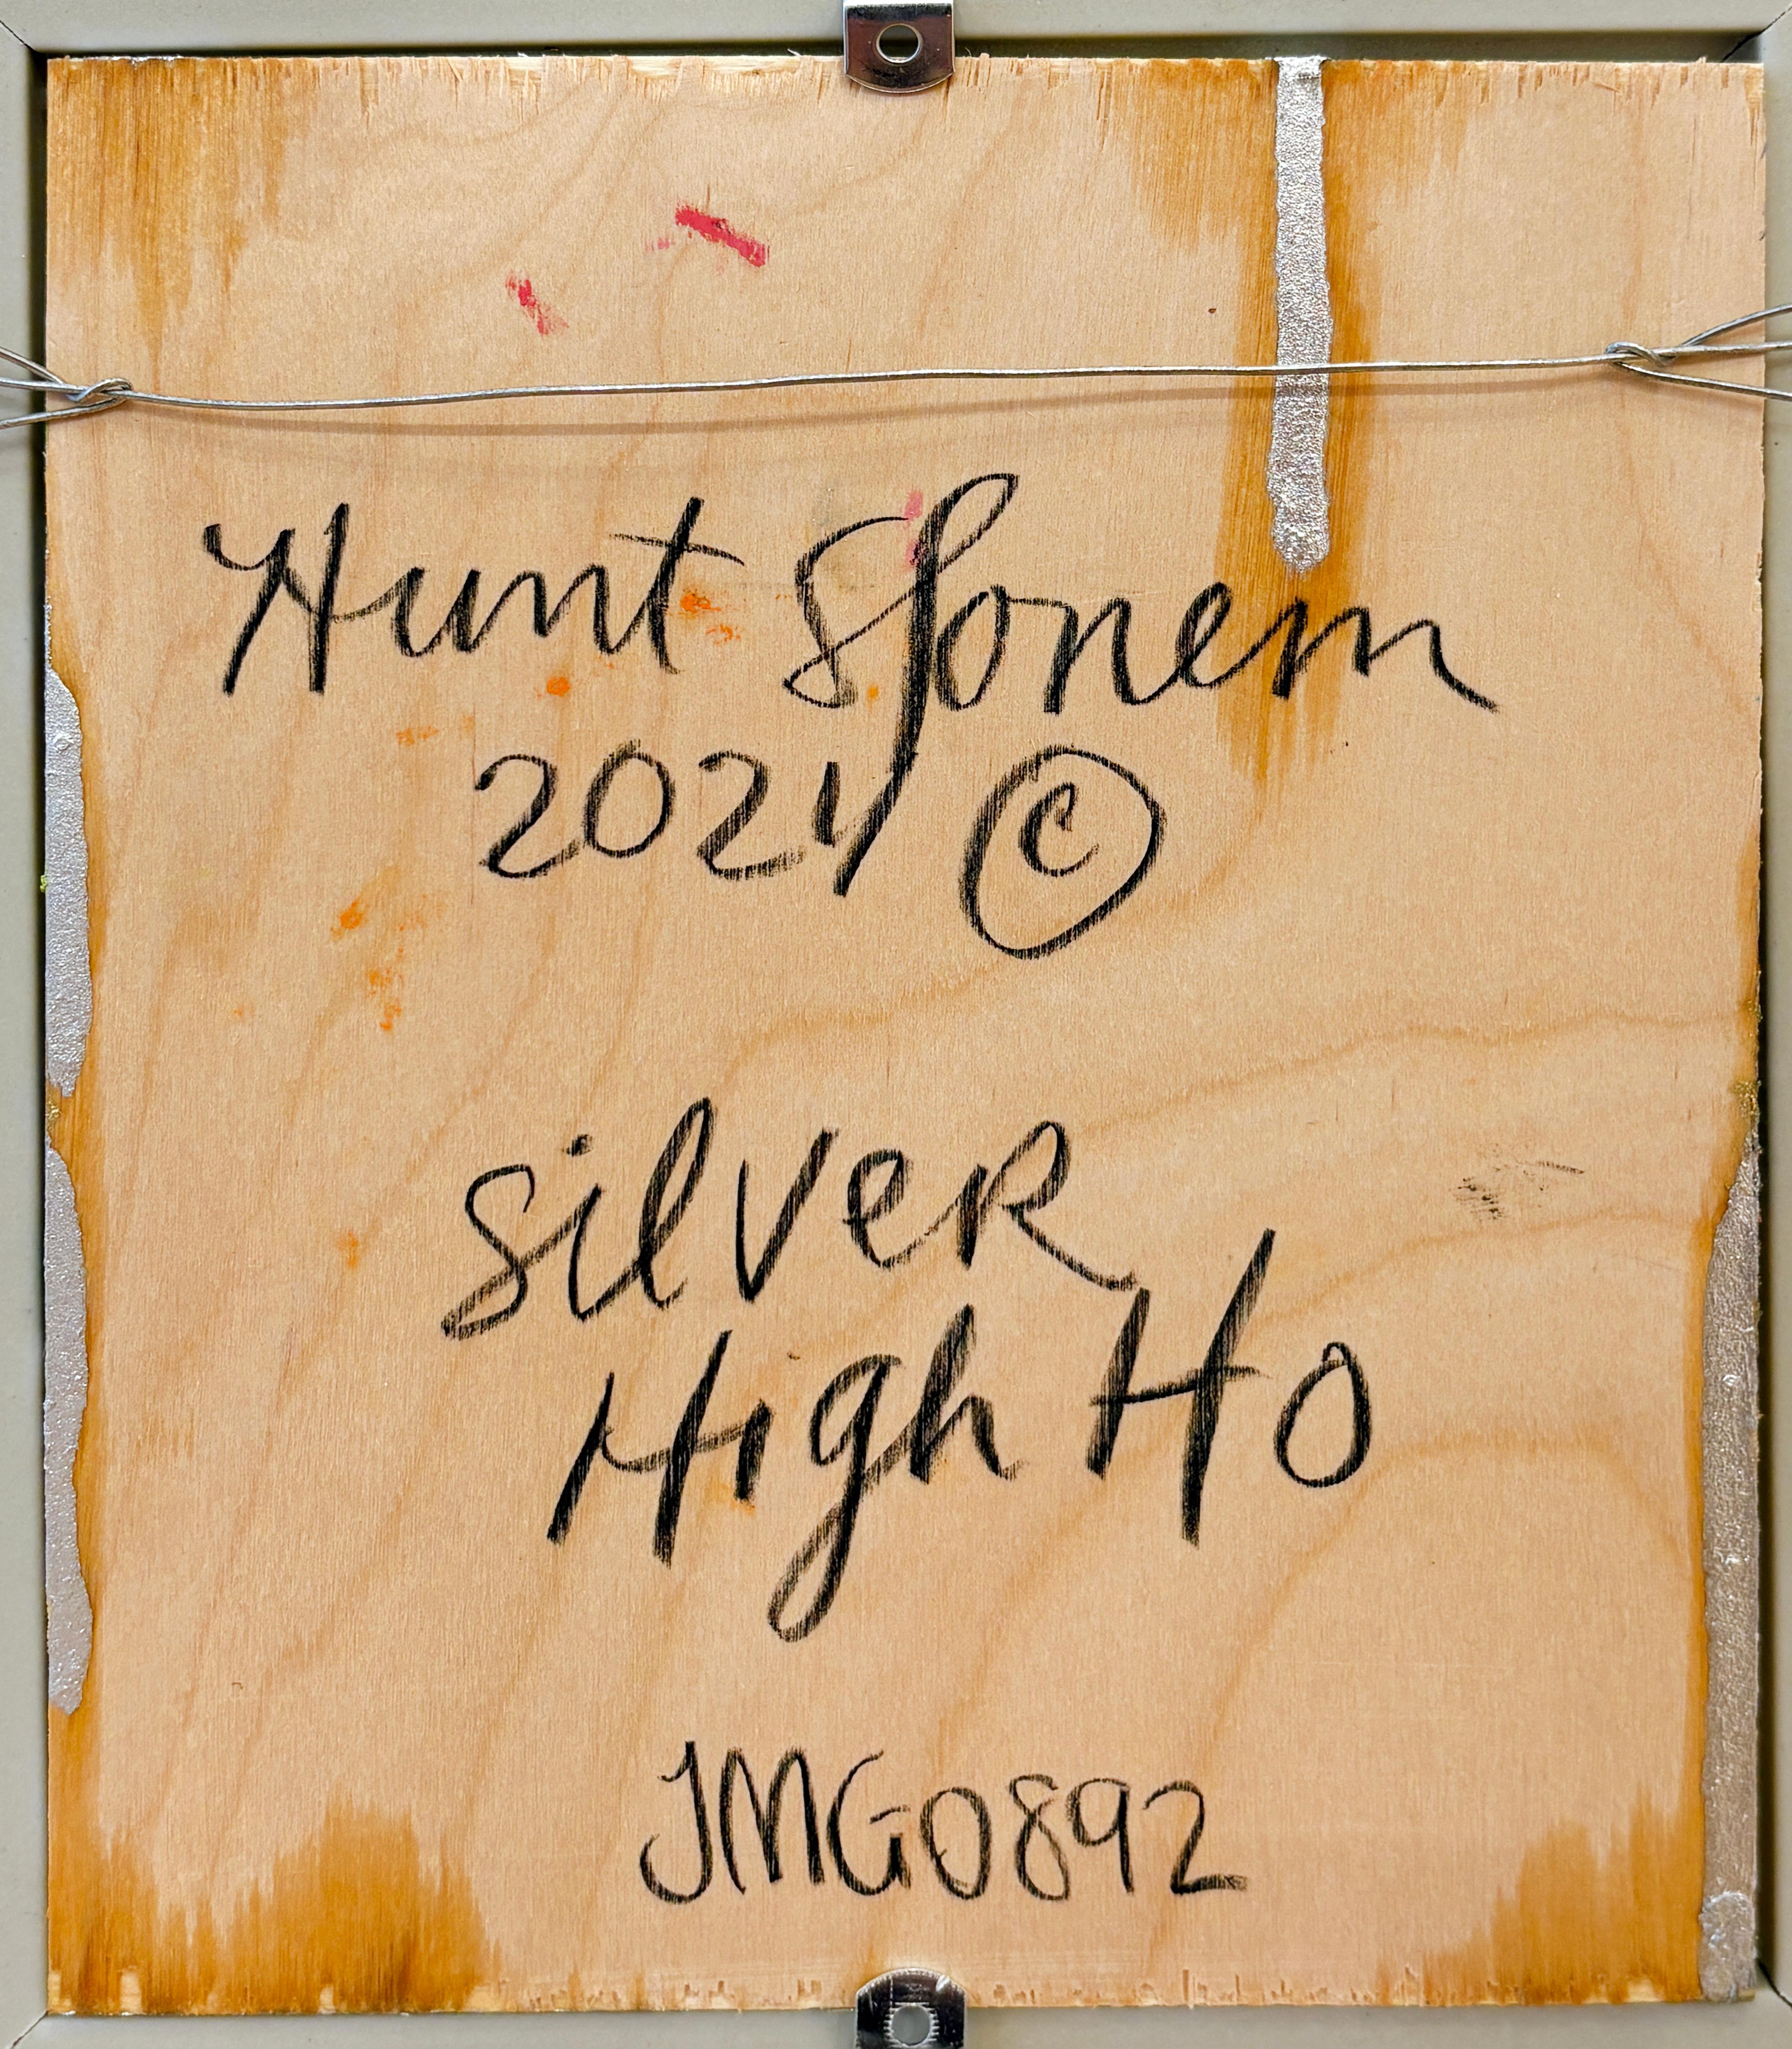 Hunt Slonem
2024 ©
Silver
High Ho
JMG0892